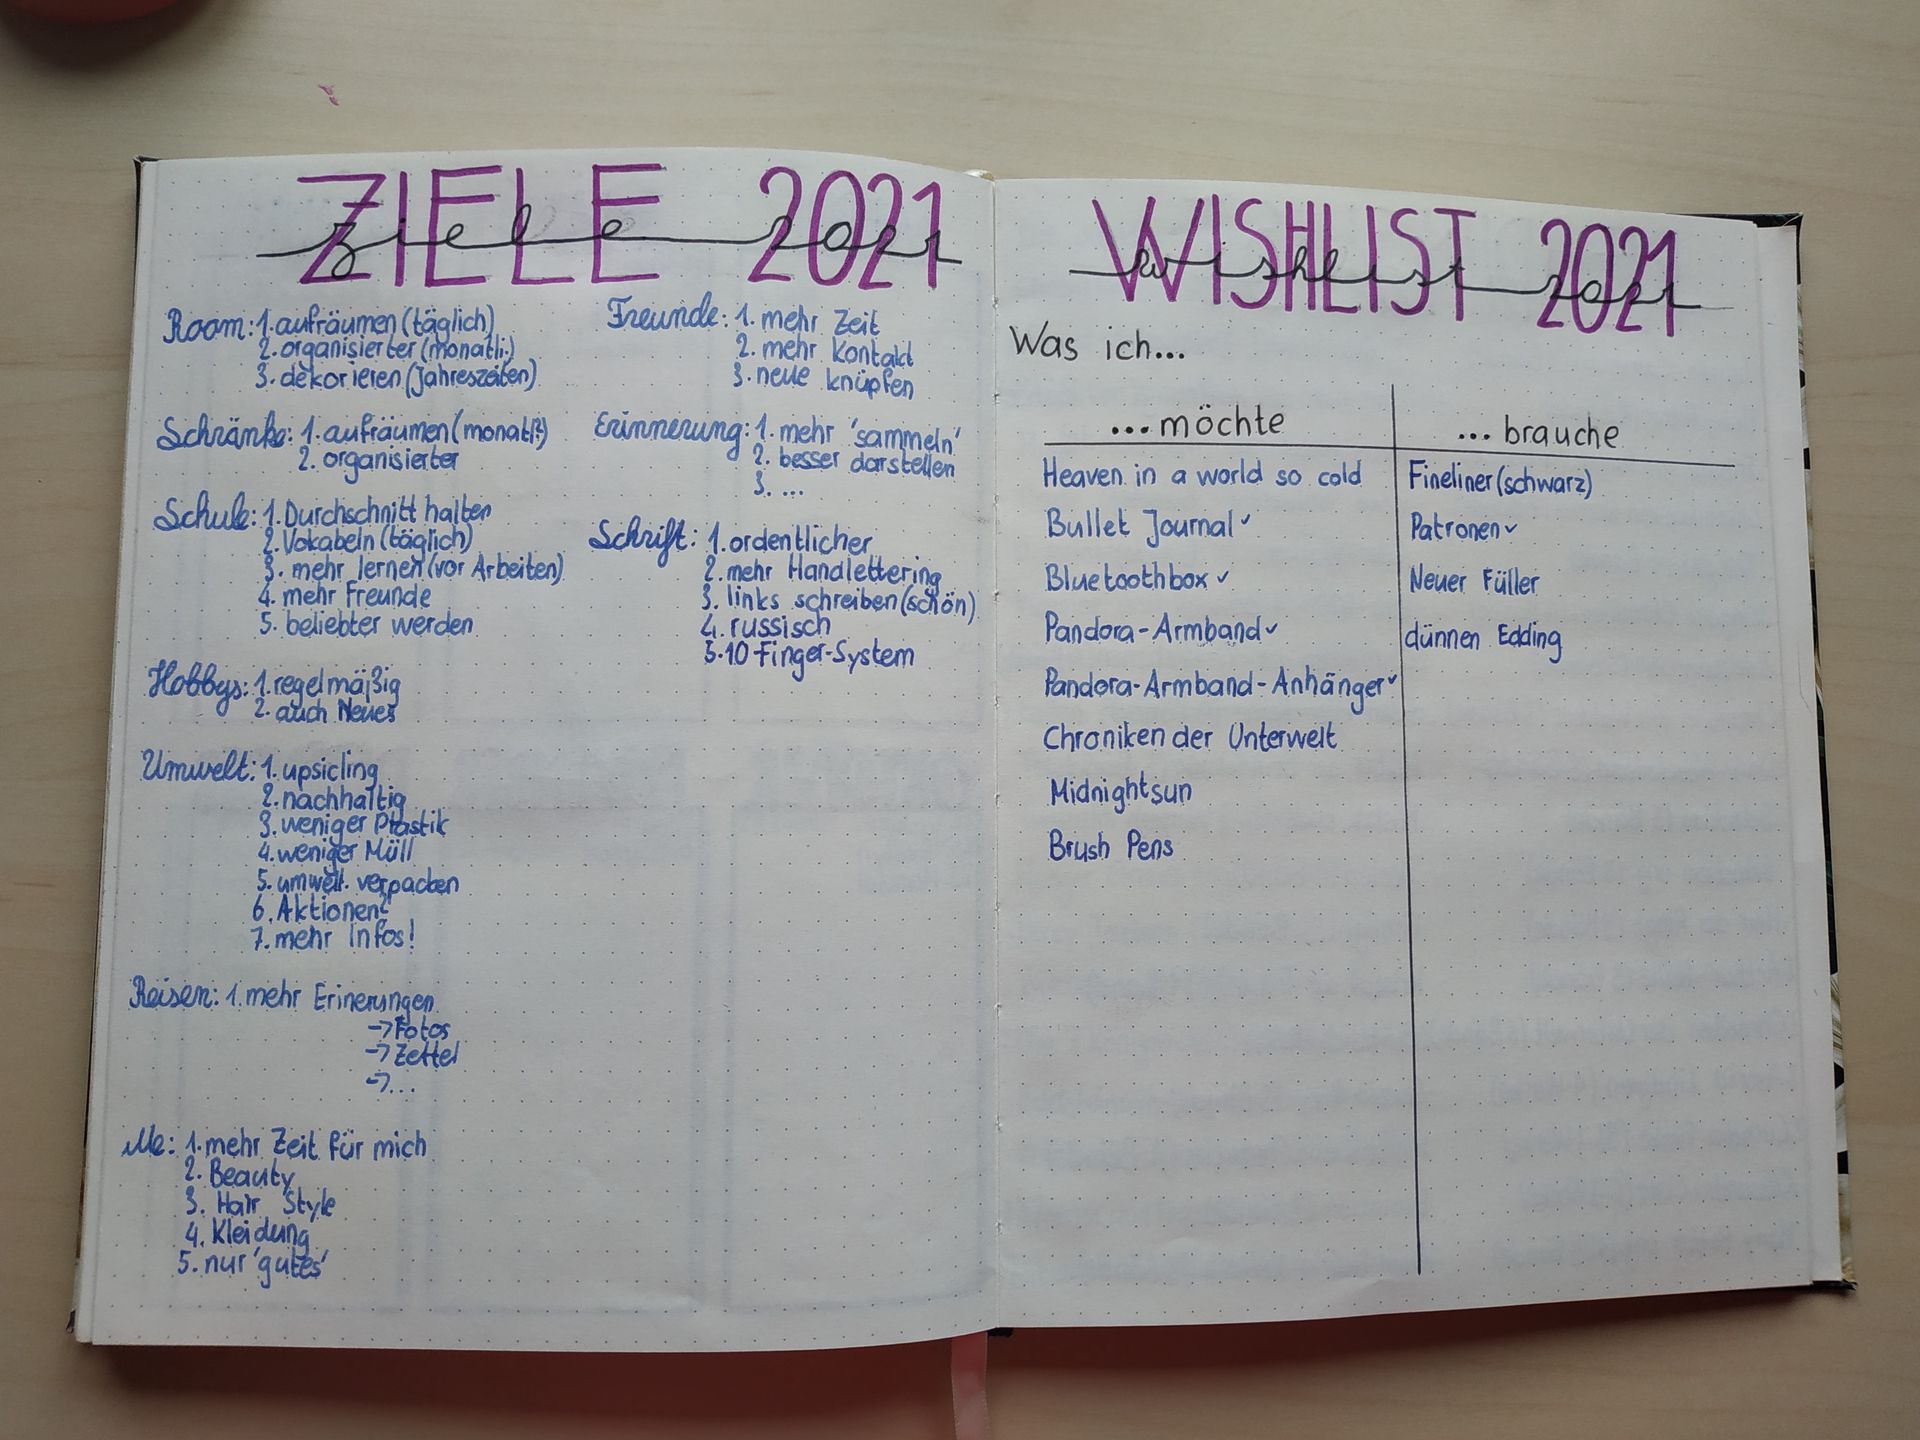 ZIELE 2021
ziele 2021
Room: 1. aufräumen (täglich)
2. organisierter (monatl.)
3. dekorieren (Jahreszeiten)
Schränke: 1. aufräumen (monatl?)
2. organisierter
Schule: 1. Durchschnitt halten
2. Vokabeln (täglich)
3. mehr lernen (vor Arbeiten)
4. mehr Freunde
5. beliebter werden
Hobbys: 1. regelmäßig
2. auch Neues
Umwelt: 1. upsicling
2. nachhaltig
3. weniger Plastik
4. weniger Müll
5. umwelt. verpacken
6. Aktionen?
7. mehr Infos!
Reisen: 1. mehr Erinerungen
→ Fotos
→ Zettel
→ ...
Me: 1. mehr Zeit für mich
2. Beauty
3. Hair Style
4. Kleidung
5. nur 'gutes'
Freunde: 1. mehr Zeit
2. mehr Kontakt
3. neue knüpfen
Erinnerung: 1. mehr 'sammeln'
2. besser darstellen
3. ...
Schrift: 1. ordentlicher
2. mehr Handlettering
3. links schreiben (schön)
4. russisch
5. 10 Finger-System
WISHLIST 2021
wishlist 2021
Was ich...
...möchte
Heaven in a world so cold
Bullet Journal ✓
Bluetoothbox ✓
Pandora-Armband ✓
Pandora-Armband-Anhänger ✓
Chroniken der Unterwelt
Midnightsun
Brush Pens
... brauche
Fineliner (schwarz)
Patronen ✓
Neuer Füller
dünnen Edding